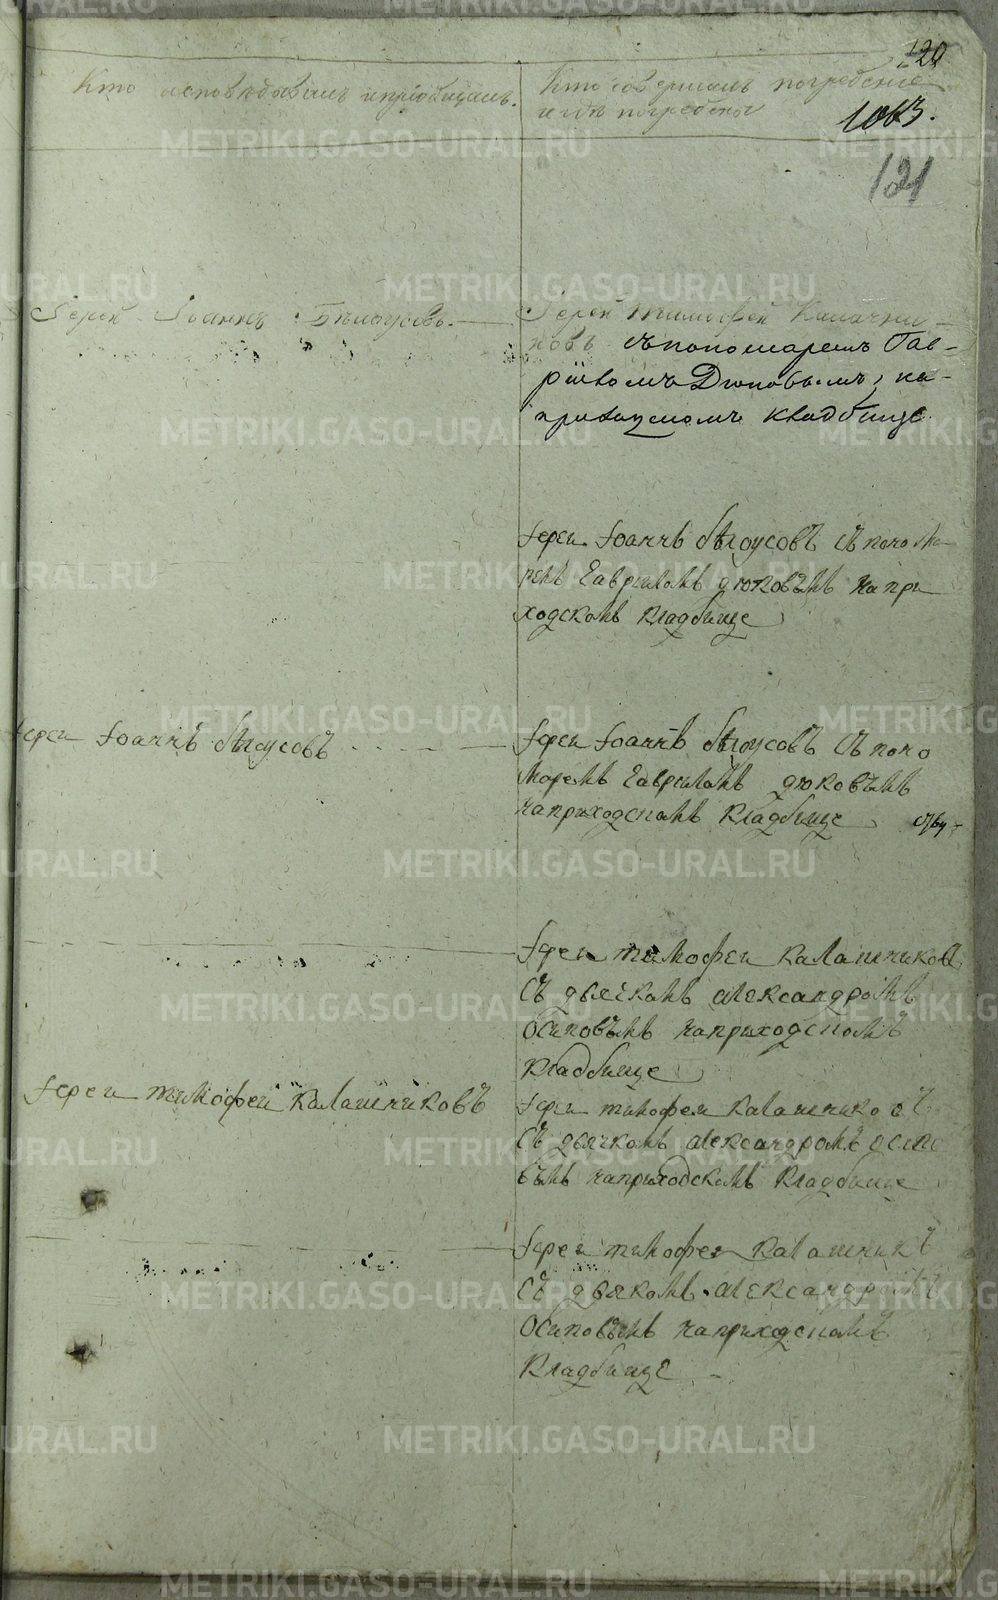 120
Кто исповѣдовалъ и пріобщалъ.
Кто совершалъ погребеніе
и гдѣ погребены
1063.
121
Іерей Іоаннъ Бѣлоусовъ.
Іерей Тимофей Калашни-
ковъ съ пономаремъ Гав-
риломъ Дюковымъ, на
приходскомъ кладбище.
Іереи Іоаннъ бѣлоусовъ съ понома
ремъ Гавриломъ дюковымъ на при
ходскомъ кладбище
Іереи Іоаннъ бѣлоусовъ
Іереи Іоаннъ бѣлоусовъ съ поно
маремъ Гавриломъ дюковымъ
на приходскомъ кладбище
Іереи тимофеи калашниковъ
съ дьячкомъ александромъ
Осиповымъ на приходскомъ
кладбище
Іереи тимофеи калашниковъ
Іереи тимофеи калашниковъ
съ дьячкомъ александромъ осипо
вымъ на приходскомъ кладбище
Іереи тимофеи калашникъ
съ дьякомъ александромъ
Осиповымъ на приходскомъ
кладбище
METRIKI.GASO-URAL.RU